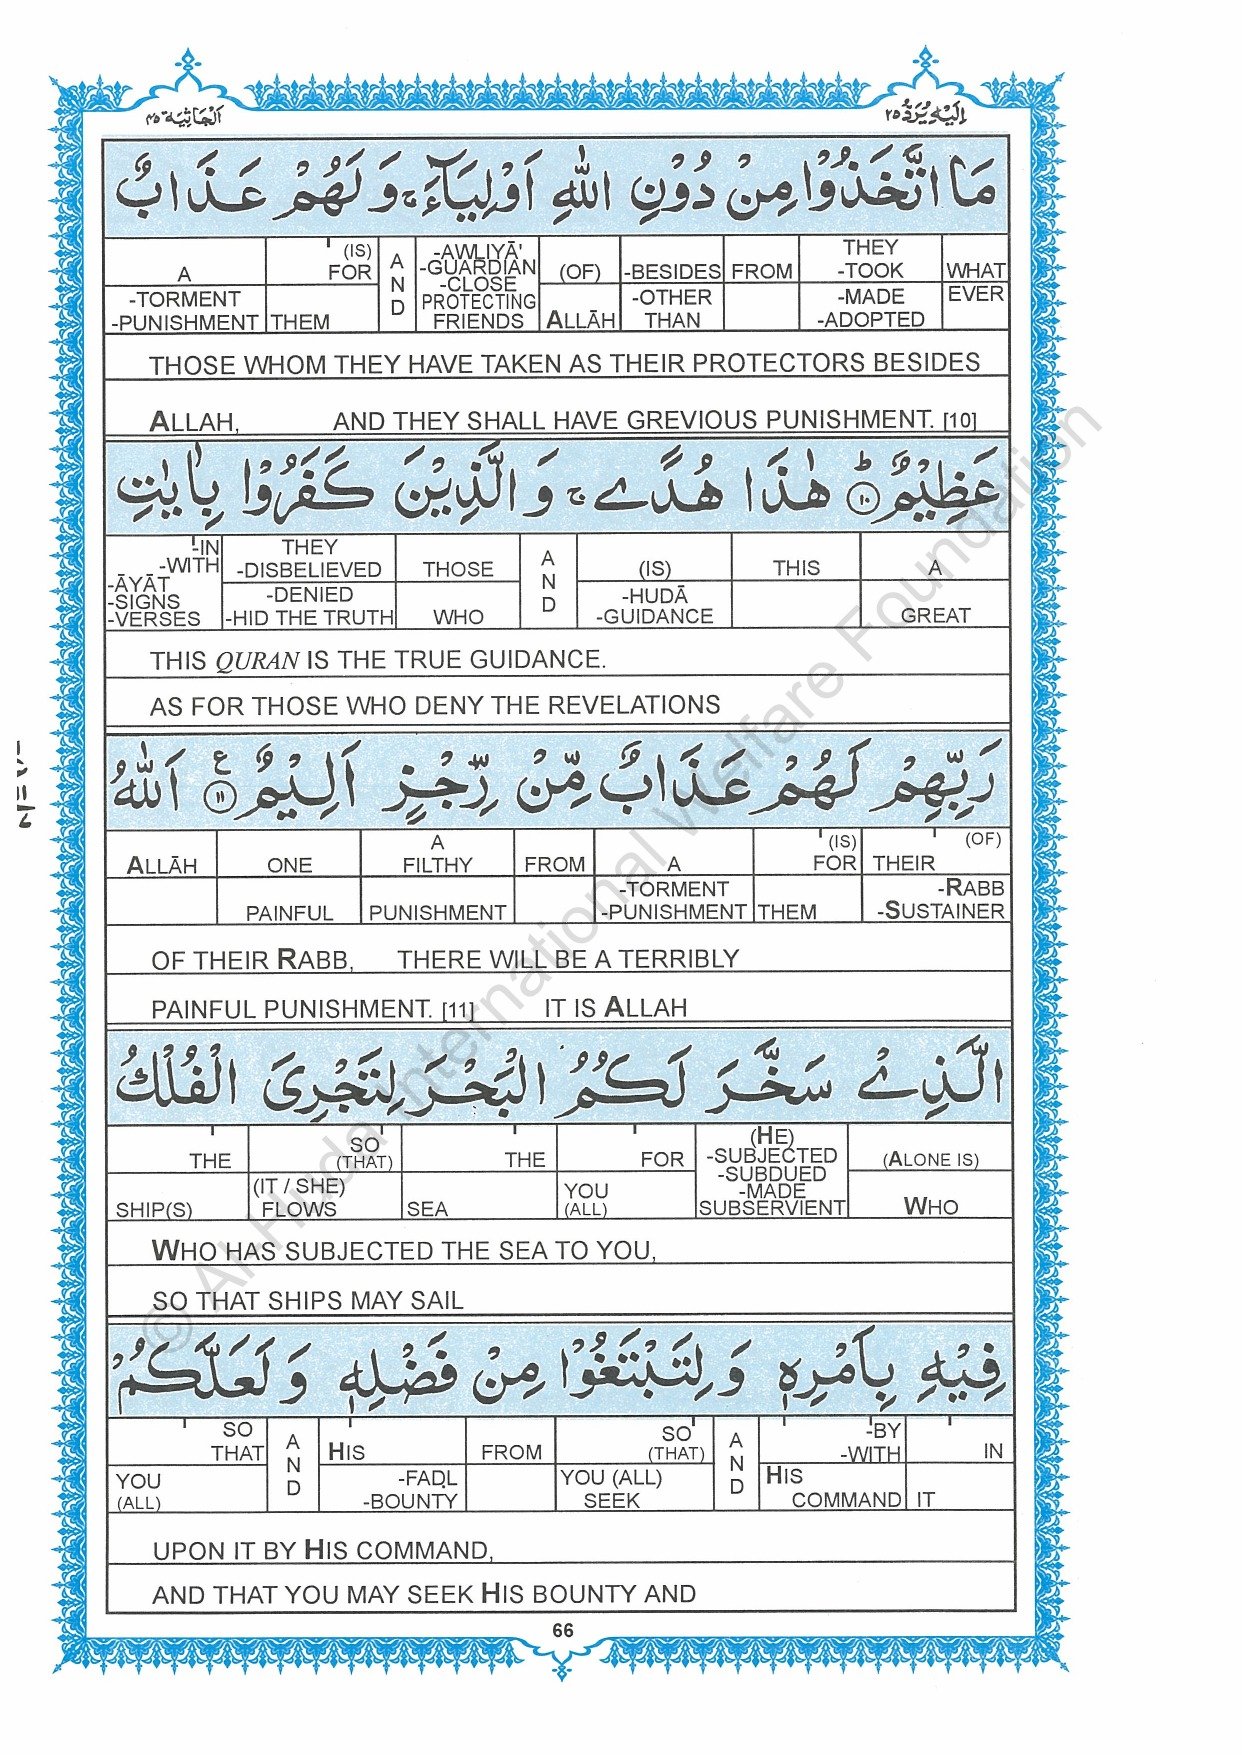 اَلْجَاثِيَة ٤٥ اِلَيْهِ يُرَدُّ ٢٥
مَا اتَّخَذُوْا مِنْ دُوْنِ اللّٰهِ اَوْلِيَآءَ ۚ وَ لَهُمْ عَذَابٌ
A (IS) FOR A N D -AWLIYĀ' -GUARDIAN -CLOSE PROTECTING FRIENDS (OF) -BESIDES FROM THEY -TOOK WHAT
-TORMENT -PUNISHMENT THEM ALLĀH -OTHER THAN -MADE -ADOPTED EVER
THOSE WHOM THEY HAVE TAKEN AS THEIR PROTECTORS BESIDES
ALLAH, AND THEY SHALL HAVE GREVIOUS PUNISHMENT. [10]
عَظِيْمٌ ؕ ١٠ هٰذَا هُدًے ۚ وَ الَّذِيْنَ كَفَرُوْا بِاٰيٰتِ
-IN -WITH THEY -DISBELIEVED THOSE A N D (IS) THIS A
-ĀYĀT -SIGNS -VERSES -DENIED -HID THE TRUTH WHO -HUDĀ -GUIDANCE GREAT
THIS QURAN IS THE TRUE GUIDANCE.
AS FOR THOSE WHO DENY THE REVELATIONS
رَبِّهِمْ لَهُمْ عَذَابٌ مِّنْ رِّجْزٍ اَلِيْمٌ ع ١١ اَللّٰهُ
ALLĀH ONE A FILTHY FROM A (IS) FOR (OF) THEIR
PAINFUL PUNISHMENT -TORMENT -PUNISHMENT THEM -RABB -SUSTAINER
OF THEIR RABB, THERE WILL BE A TERRIBLY
PAINFUL PUNISHMENT. [11] IT IS ALLAH
الَّذِے سَخَّرَ لَكُمُ الْبَحْرَ لِتَجْرِىَ الْفُلْكُ
THE SO (THAT) THE FOR (HE) -SUBJECTED -SUBDUED -MADE SUBSERVIENT (ALONE IS)
SHIP(S) (IT / SHE) FLOWS SEA YOU (ALL) WHO
WHO HAS SUBJECTED THE SEA TO YOU,
SO THAT SHIPS MAY SAIL
فِيْهِ بِاَمْرِهٖ وَ لِتَبْتَغُوْا مِنْ فَضْلِهٖ وَ لَعَلَّكُمْ
SO THAT A N D HIS FROM SO (THAT) A N D -BY -WITH IN
YOU (ALL) -FAḌL -BOUNTY YOU (ALL) SEEK HIS COMMAND IT
UPON IT BY HIS COMMAND,
AND THAT YOU MAY SEEK HIS BOUNTY AND
66
© Al-Huda International Welfare Foundation